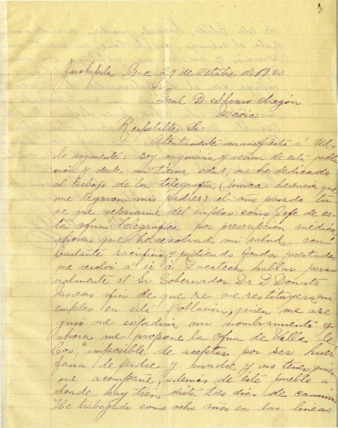 Juchipila Zac 29 de Octubre de 1920
Sr
Gral D. Alvaro Obregón
México
Respetable Sr:
Atentamente manifiesto á Ud.
lo siguiente: soy originaria y vecina de esta pobla
ción y desde mi tierna edad, me he dedicado
al trabajo de la telegrafía (única herencia que
me legaron mis padres) el año pasado tu
ve que separarme del empleo como Jefe de es
ta ofna Telegrafica por prescripción médica
ahora que he recobrado mi salud, con
bastante sacrificio y pidiendo fondos prestados
me resolví á ir á Zacatecas hablar perso
nalmente al Sr Gobernador Dr. D Donato
Moreno afin de que se me restituyera mi
empleo en esta Población, quien me ase
guró me expediría mi nombramiento y
ahora me propone la ofna de Villa de
Cos, imposible de aceptar por ser huer
fana de padre y y no tengo quien
me acompañe, además de este pueblo á
donde hay tren dista tres días de camino.
He trabajado como ocho años en las líneas